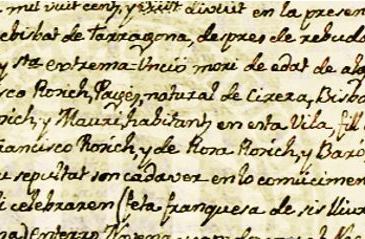 mil vuit cents, y vuit discuit en la presen
ebisbat de Tarragona, despres de rebuda
y sta extrema-Unció morí de edat de al
co Rorich, Pages, natural de Cirera, Bisba
rich, y Mauri, habitant, en esta Vila, fill
rancisco Rorich, y de Rora Rorich, y Baró
sepultat son cadaver en lo comú ciment
celebraren (feta franquesa de sis lliur
enterro Novena